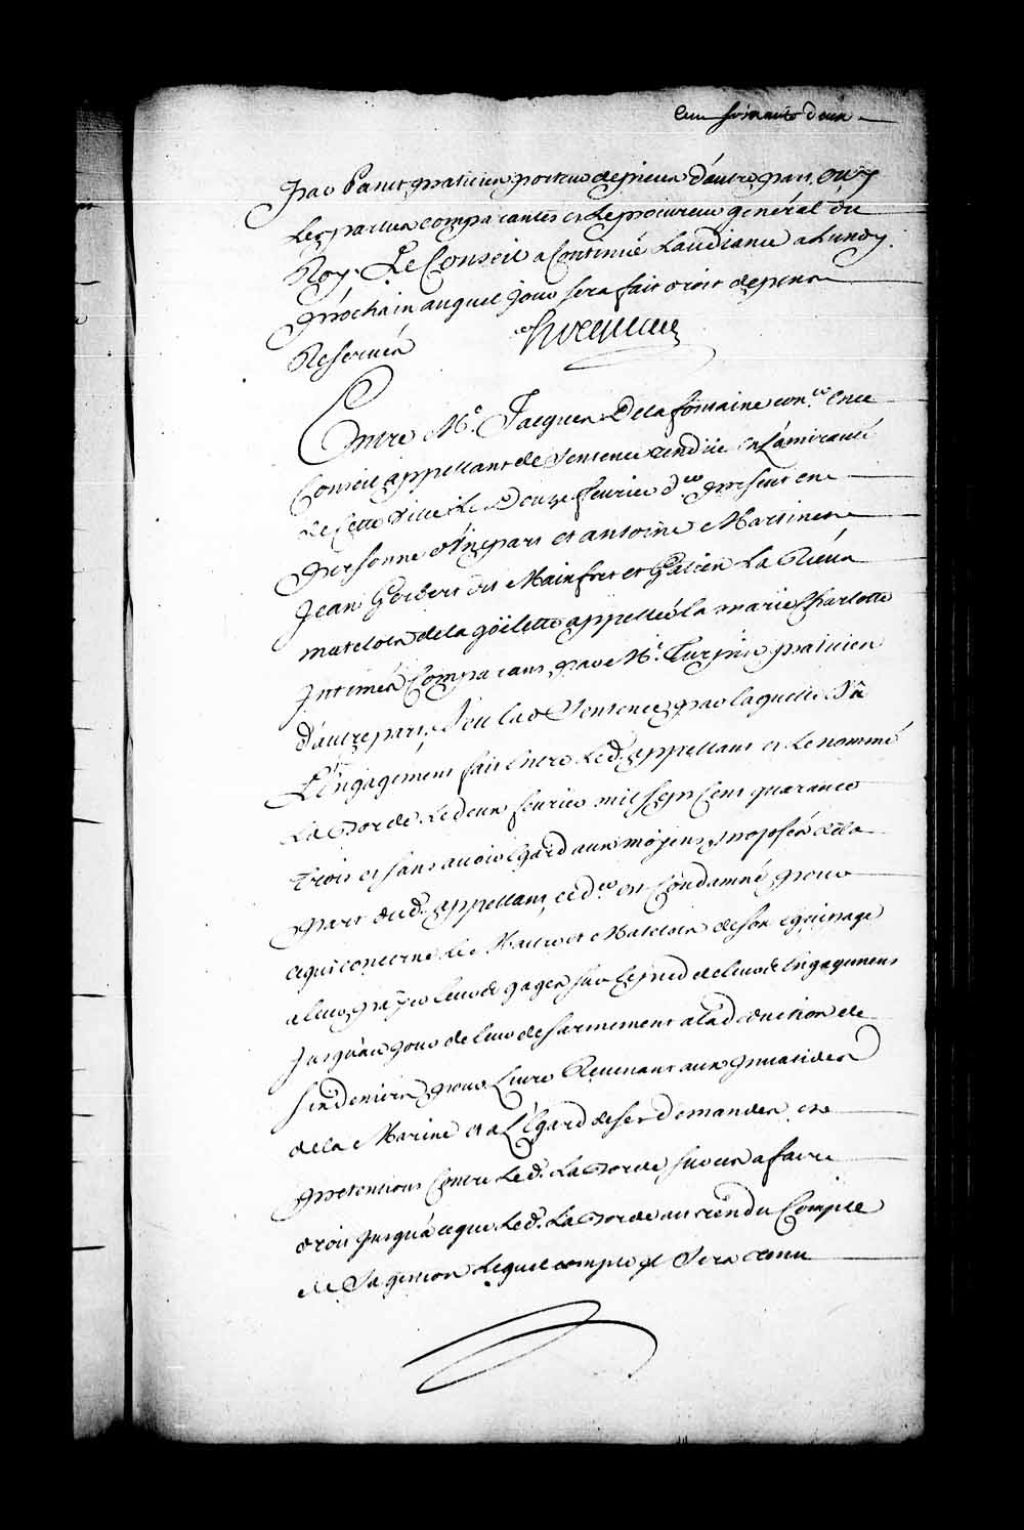 Cent soixante deux
par Panet praticien porteur de pieces d'autre part, ouy
Les parties comparantes et Le procureur general du
Roy. Le Conseil a Continué Laudiance a Lundy
prochain auquel jour sera fait droit depens
Reservés
hocquart
Entre Me. Jacques Delafontaine conser. en ce
Conseil appellant de Sentence rendüe en L'amirauté
de cette ville Le Douze fevrier der present en
personne d'Une part et antoine Martinet
Jean Gerbert dit Mainfret et Galien La
matelots de la göelette appellée la marie Charlotte
Intimés Comparans par Me. Turpin praticien
d'autre part. Veu lad. Sentence par laquelle Vû
L'Engagement fait entre Led. appellant et Le nommé
La Borde Le deux fevrier mil sept Cent quarante
trois et sans avoir Egard aux moyens proposés de la
part dud. appellant, iceluy est Condamné pour
ce qui concerne Les Maitre et Matelots de son Equipage
a leur payer leurs gages sur le pied de leurs Engagemens
Jusqu'au jour de leur desarmement a la deduction de
six deniers pour Livre Revenant aux Invalides
de la Marine et a L'Egard de ses demandes et
pretentions Contre Led. La Borde surcis a faire
droit Jusqu'a ce que Led. La Borde ait rendu Compte
de Sa gestion Lequel compte Sera tenu